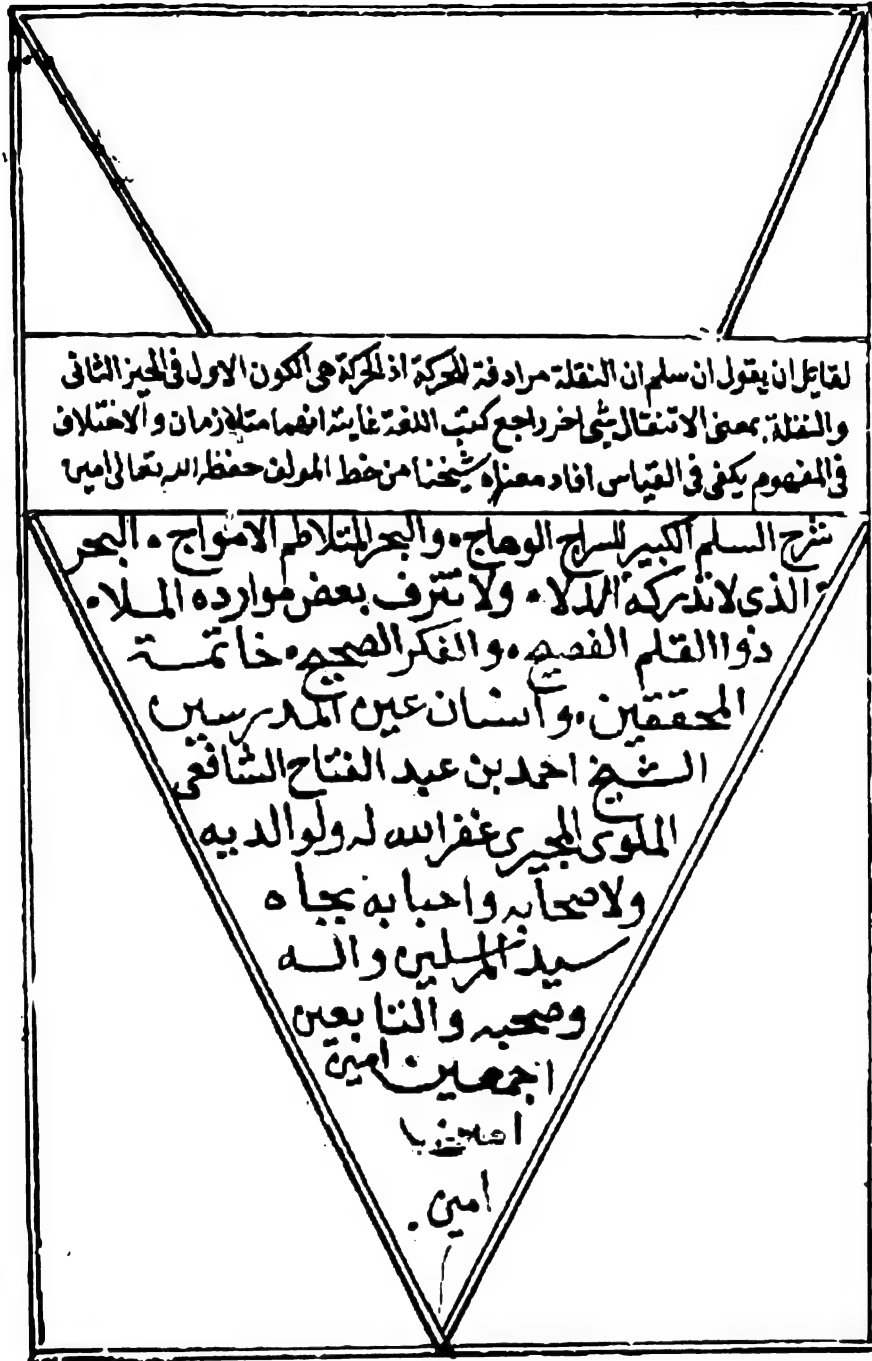 لقايل ان يقول ان سلم ان النقلة مرادفة للحركة اذ الحركة هى الكون الاول فى الحيز الثانى
والنقلة بمعنى الانتقال شى اخر راجع كتب اللغة غايته انهما متلازمان والاختلاف
فى المفهوم يكفى فى القياس افاد معناه شيخنا من خط المولف حفظه الله تعالى امين
شرح السلم الكبير للسراج الوهاج ٠ والبحر المتلاطم الامواج ٠ البحر
الذى لا تدركه الدلاء ٠ ولا تنزف بعض موارده الملاء ٠
ذو القلم الفصيح ٠ والفكر الصحيح ٠ خاتمة
المحققين ٠ وانسان عين المدرسين
الشيخ احمد بن عبد الفتاح الشافعى
الملوى المجيرى غفر الله له ولوالديه
ولاصحابه واحبابه بجاه
سيد المرسلين واله
وصحبه والتابعين
اجمعين امين
امين